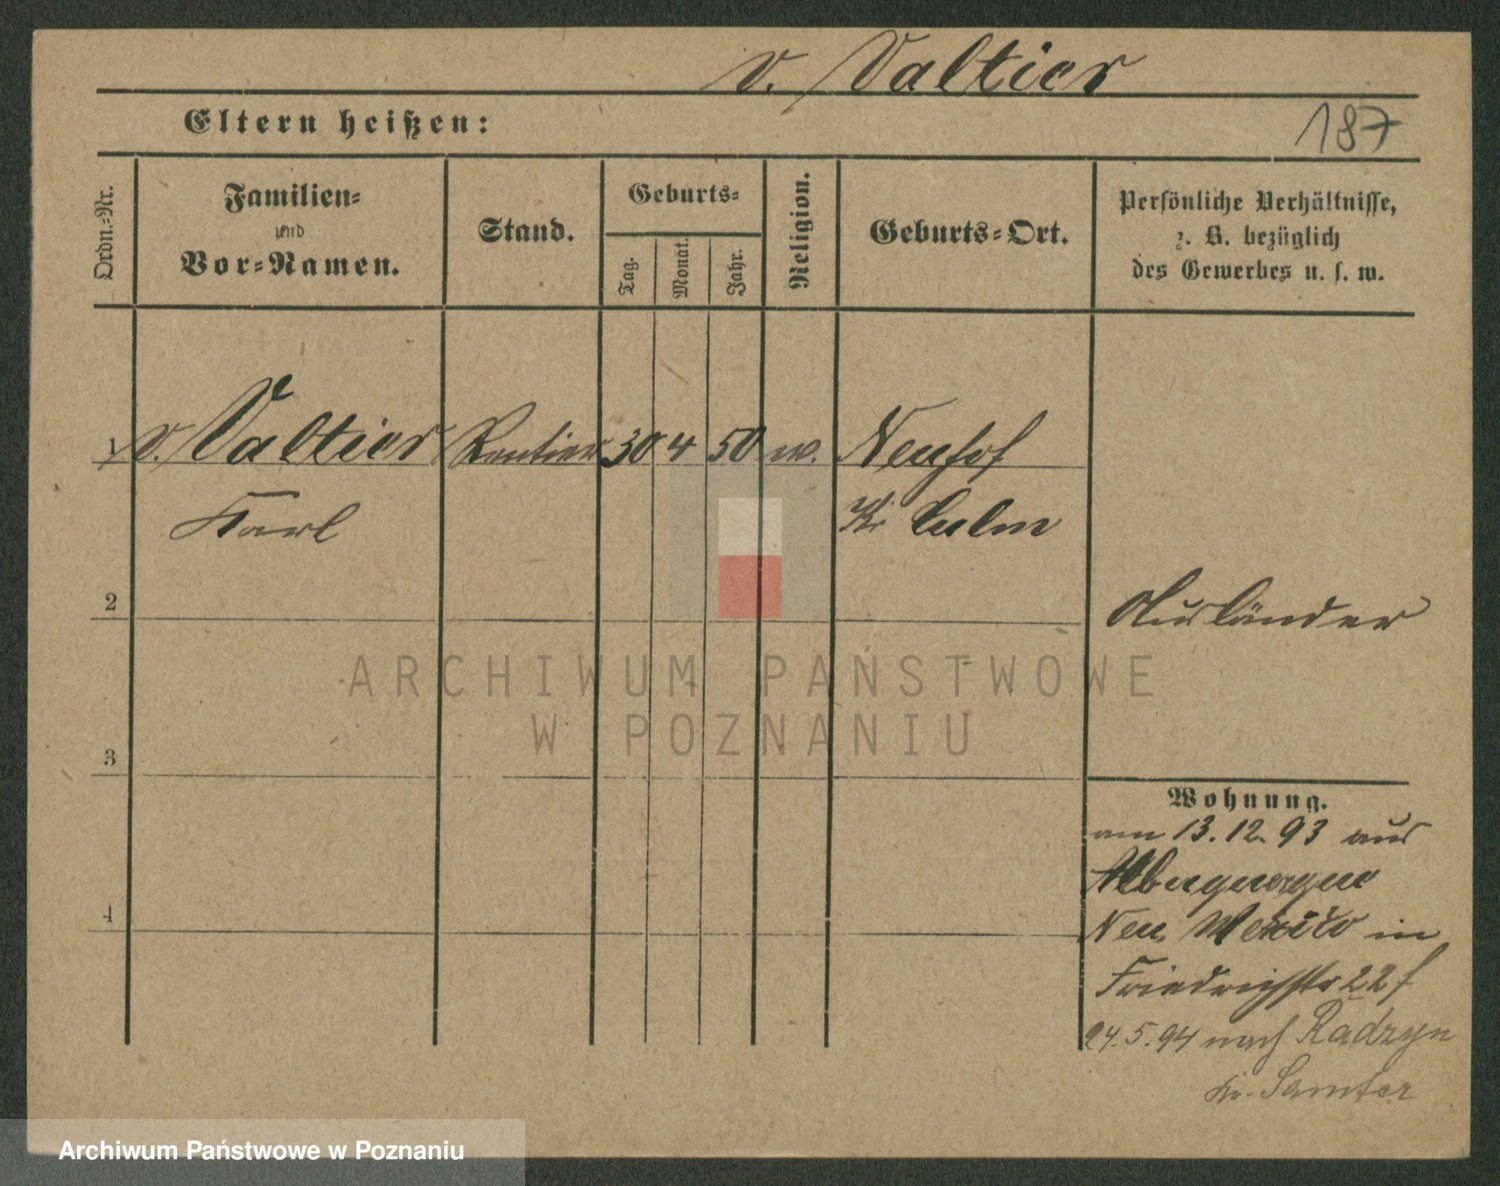 v. Valtier
Eltern heißen:
187
Ordn.-Nr.
Familien-
und
Vor-Namen.
Stand.
Geburts-
Tag.
Monat.
Jahr.
Religion.
Geburts-Ort.
Persönliche Verhältnisse,
z. B. bezüglich
des Gewerbes u. s. w.
1 v. Valtier Rentier 30 4 50 Neuhof
Karl Kr Culm
2
Ausländer
3
Wohnung.
am 13.12.93 aus
Albuquerque
Neu Mexico in
4
Friedrichstr 22f
24.5.94 nach Radzyn
Kr. Samter
ARCHIWUM PAŃSTWOWE
W POZNANIU
Archiwum Państwowe w Poznaniu